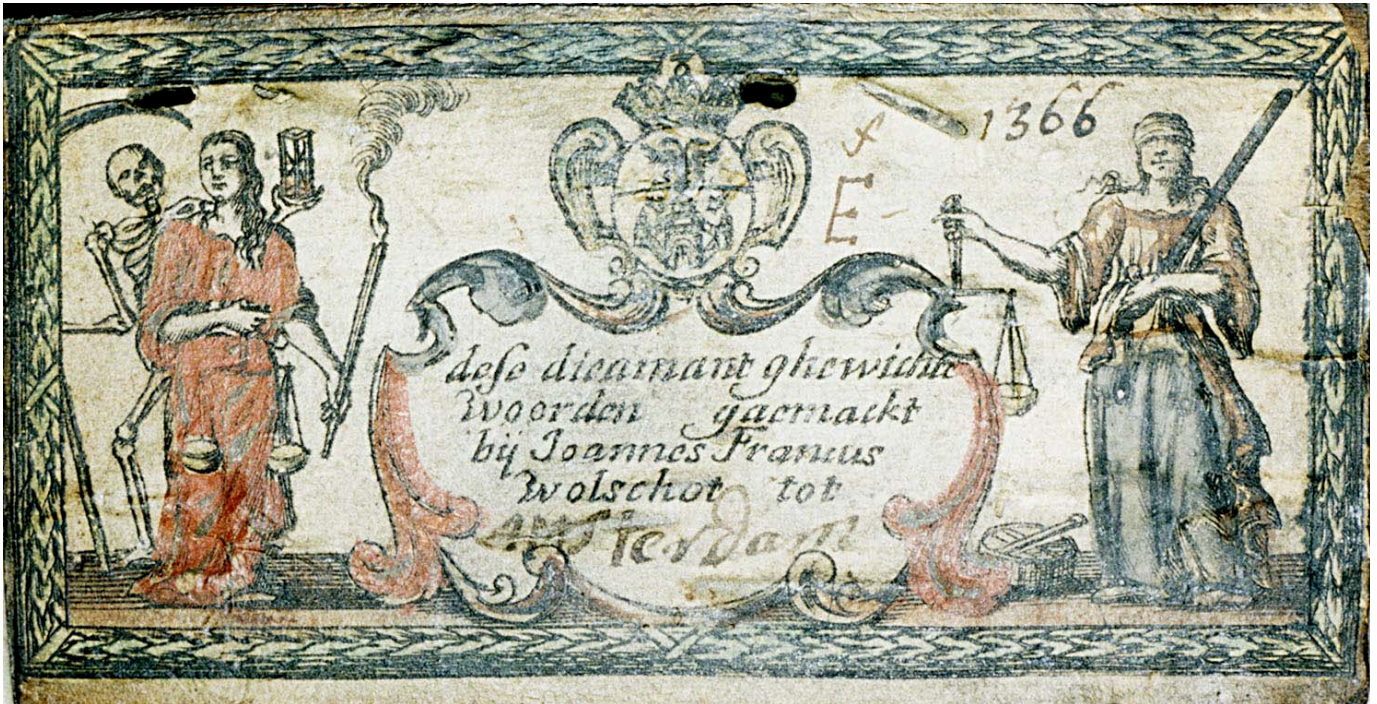 1366
E
dese dieamant ghewichte
woorden gaemackt
bij Joannes Francus
Wolschot tot
Amsterdam